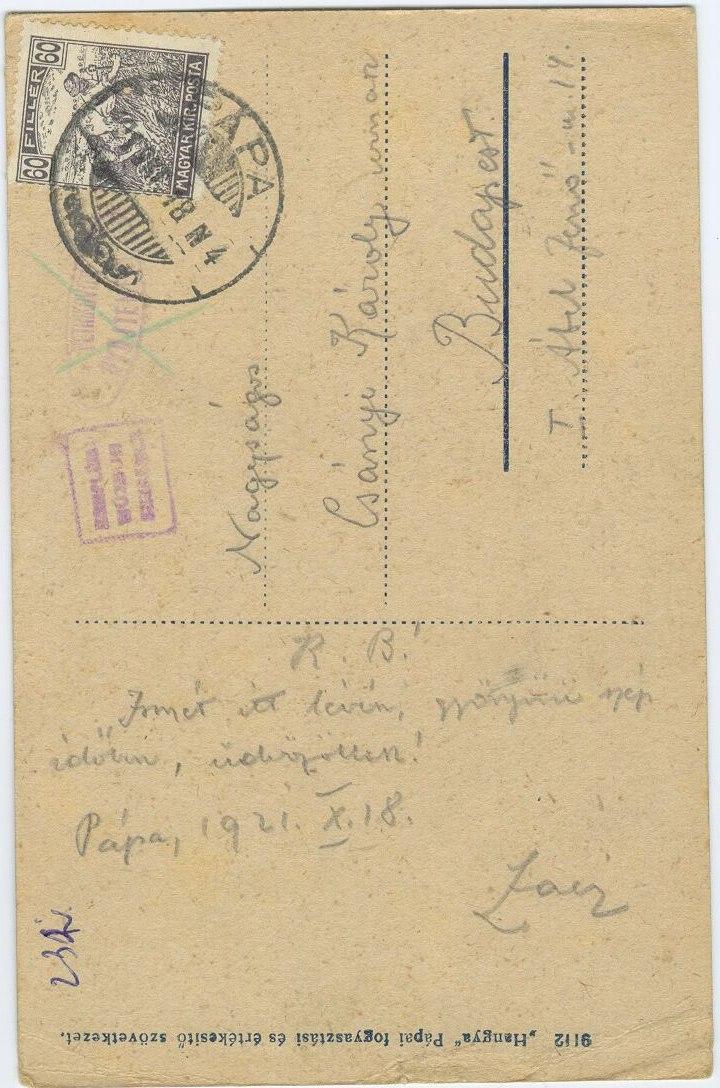 60 FILLÉR 60
MAGYAR KIR. POSTA
PÁPA
18 N 4
Nagyságos
Csányi Károly urnak
Budapest.
T. Ábel Jenő-u. 14.
K. B!
Ismét itt lévén, gyönyörű szép
időben, üdvözöllek!
Pápa, 1921. X. 18.
9112 „Hangya" Pápai fogyasztási és értékesitő szövetkezet.